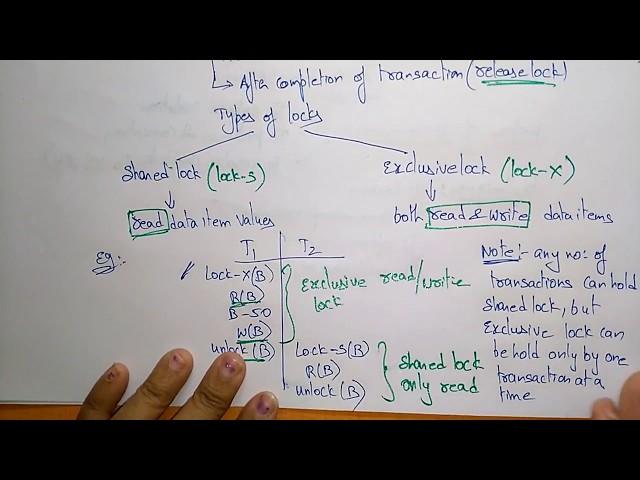 ↳ After completion of transaction (release lock)
Types of locks
Shared-lock (lock-S)
Exclusive lock (lock-X)
read data item values
both read & write data items
Eg:-
T1 T2
Lock-X(B)
R(B)
B-50
W(B)
unlock(B)
Exclusive read/write
lock
Lock-S(B)
R(B)
unlock(B)
shared lock
only read
Note:- any no: of
transactions can hold
shared lock, but
Exclusive lock can
be hold only by one
transaction at a
time